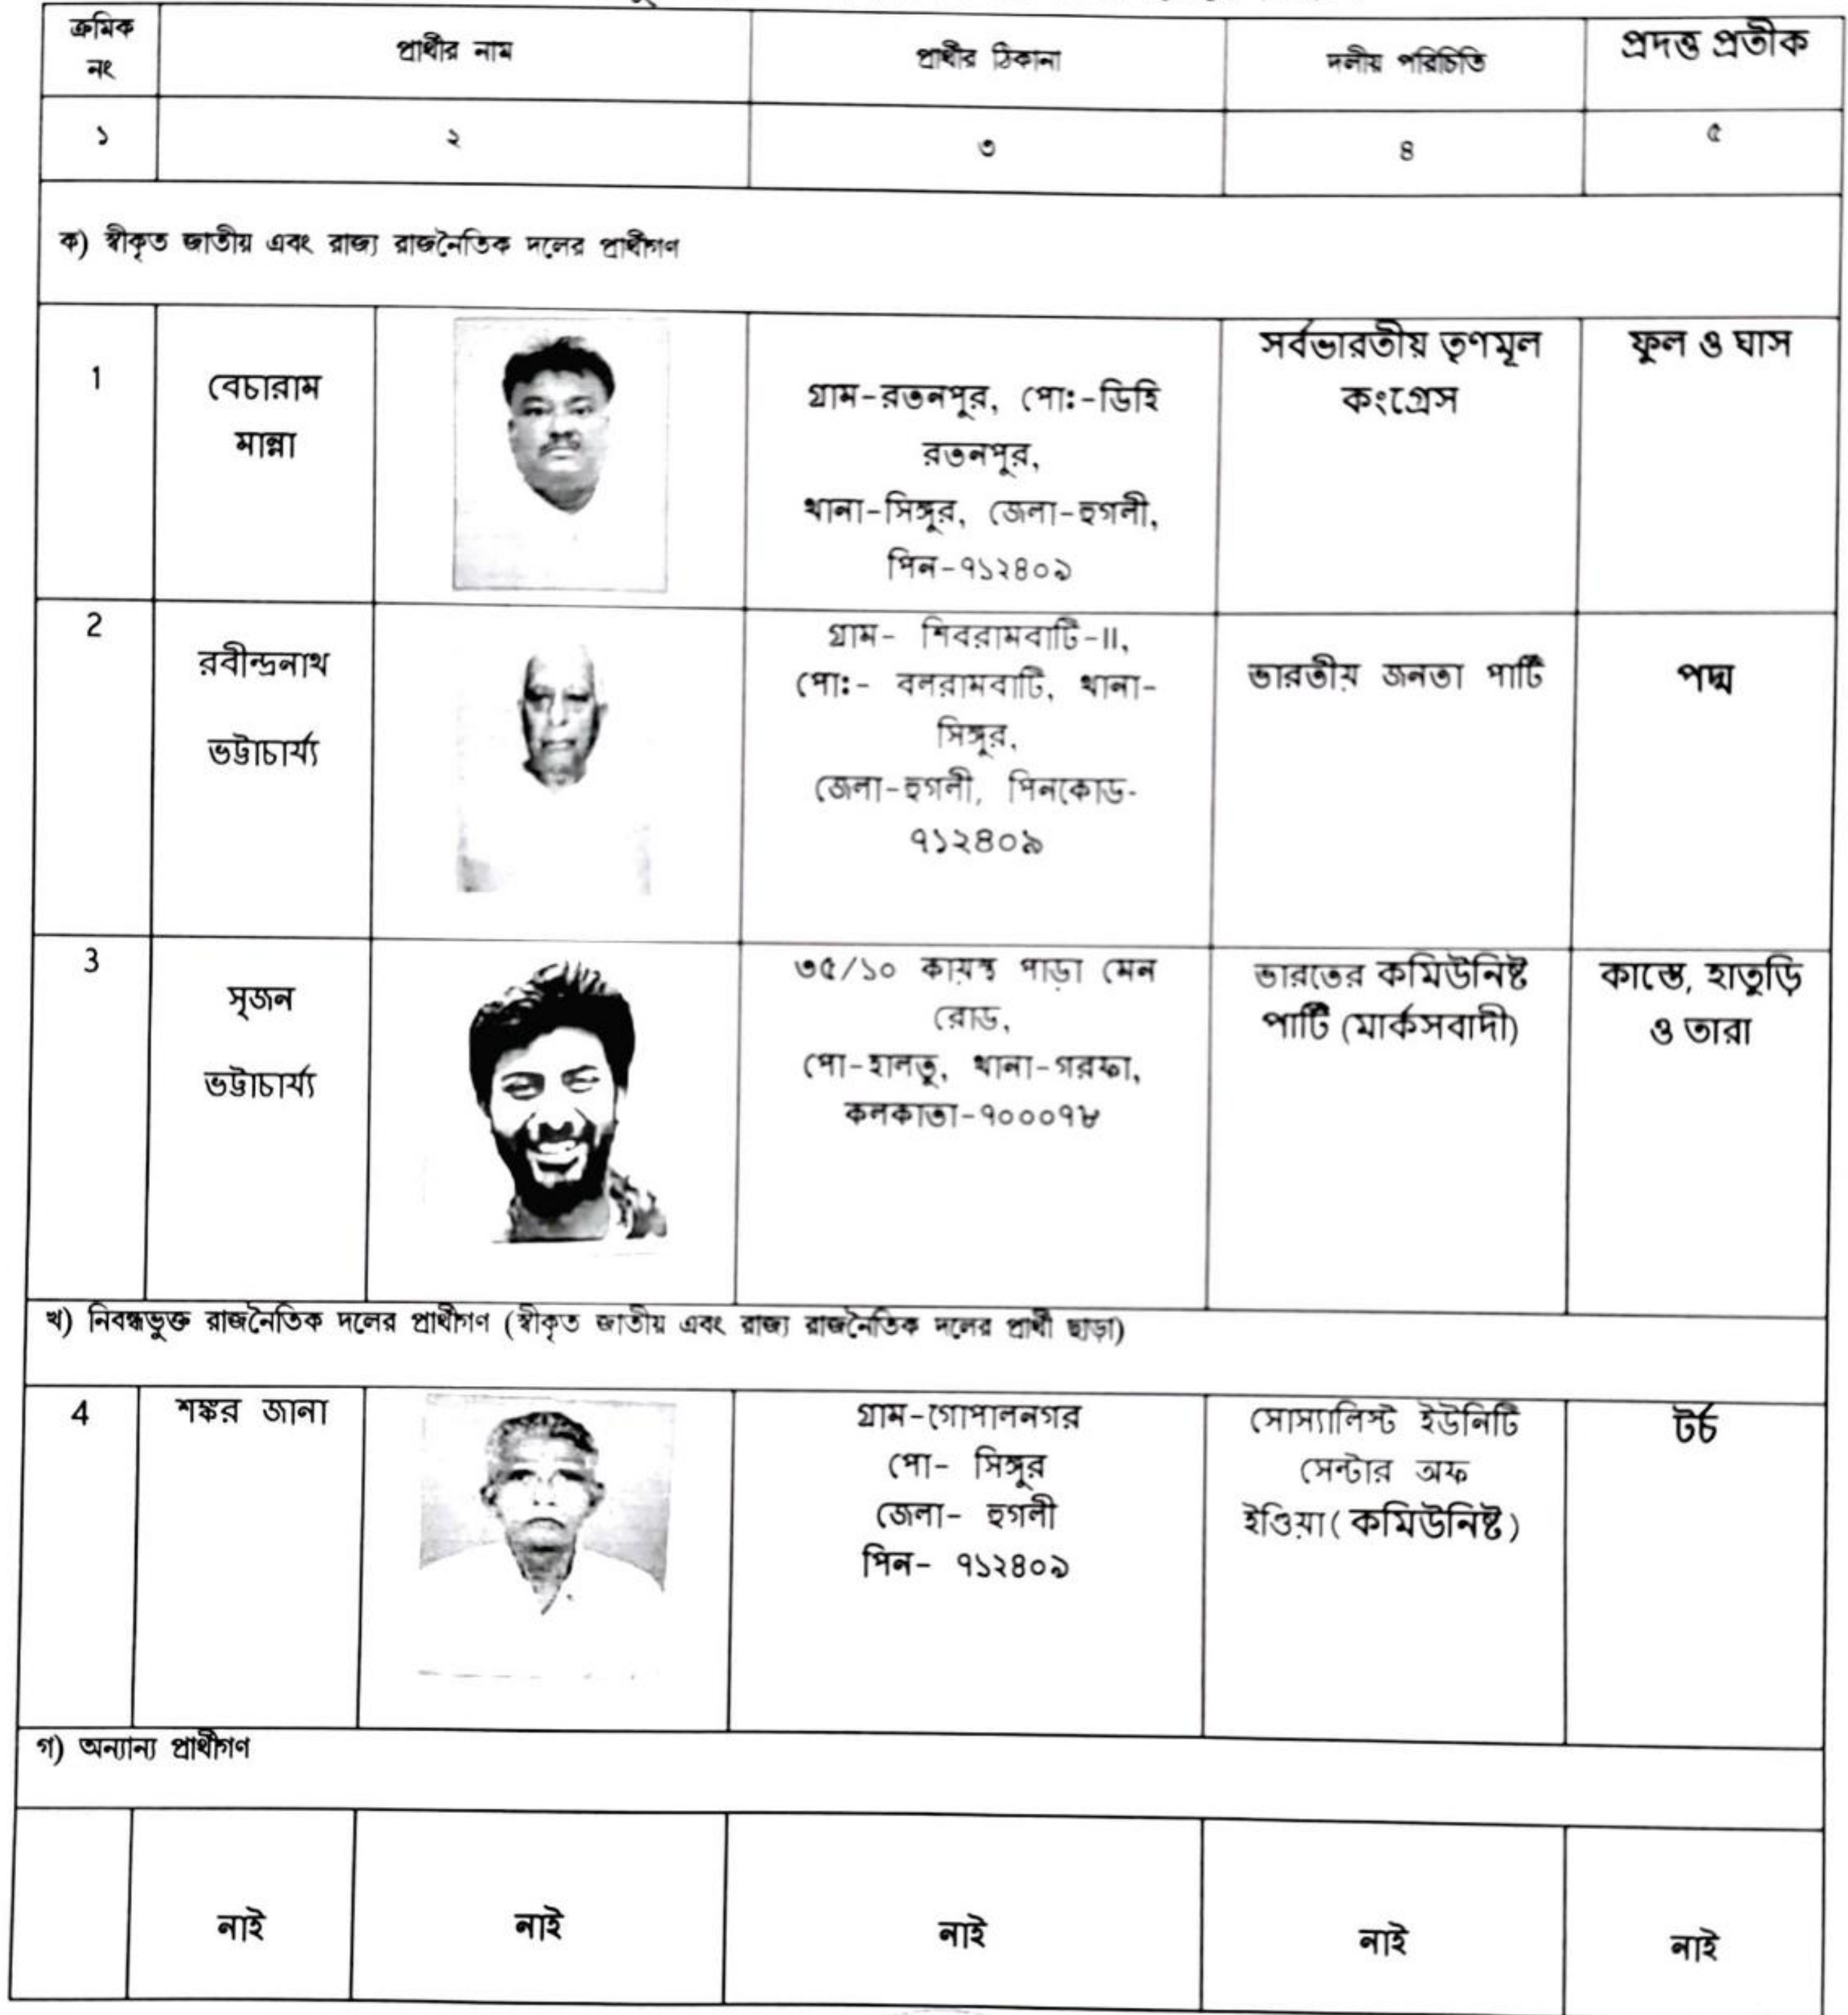 ক্রমিক
নং
প্রার্থীর নাম
প্রার্থীর ঠিকানা
দলীয় পরিচিতি
প্রদত্ত প্রতীক
১
২
৩
৪
৫
ক) স্বীকৃত জাতীয় এবং রাজ্য রাজনৈতিক দলের প্রার্থীগণ
1
বেচারাম
মান্না
গ্রাম-রতনপুর, পোঃ-ডিহি
রতনপুর,
থানা-সিঙ্গুর, জেলা-হুগলী,
পিন-৭১২৪০৯
সর্বভারতীয় তৃণমূল
কংগ্রেস
ফুল ও ঘাস
2
রবীন্দ্রনাথ
ভট্টাচার্য্য
গ্রাম- শিবরামবাটি-II,
পোঃ- বলরামবাটি, থানা-
সিঙ্গুর,
জেলা-হুগলী, পিনকোড-
৭১২৪০৯
ভারতীয় জনতা পার্টি
পদ্ম
3
সৃজন
ভট্টাচার্য্য
৩৫/১০ কায়স্থ পাড়া মেন
রোড,
পো-হালতু, থানা-গরফা,
কলকাতা-৭০০০৭৮
ভারতের কমিউনিষ্ট
পার্টি (মার্কসবাদী)
কাস্তে, হাতুড়ি
ও তারা
খ) নিবন্ধভুক্ত রাজনৈতিক দলের প্রার্থীগণ (স্বীকৃত জাতীয় এবং রাজ্য রাজনৈতিক দলের প্রার্থী ছাড়া)
4
শঙ্কর জানা
গ্রাম-গোপালনগর
পো- সিঙ্গুর
জেলা- হুগলী
পিন- ৭১২৪০৯
সোস্যালিস্ট ইউনিটি
সেন্টার অফ
ইণ্ডিয়া(কমিউনিষ্ট)
টর্চ
গ) অন্যান্য প্রার্থীগণ
নাই
নাই
নাই
নাই
নাই